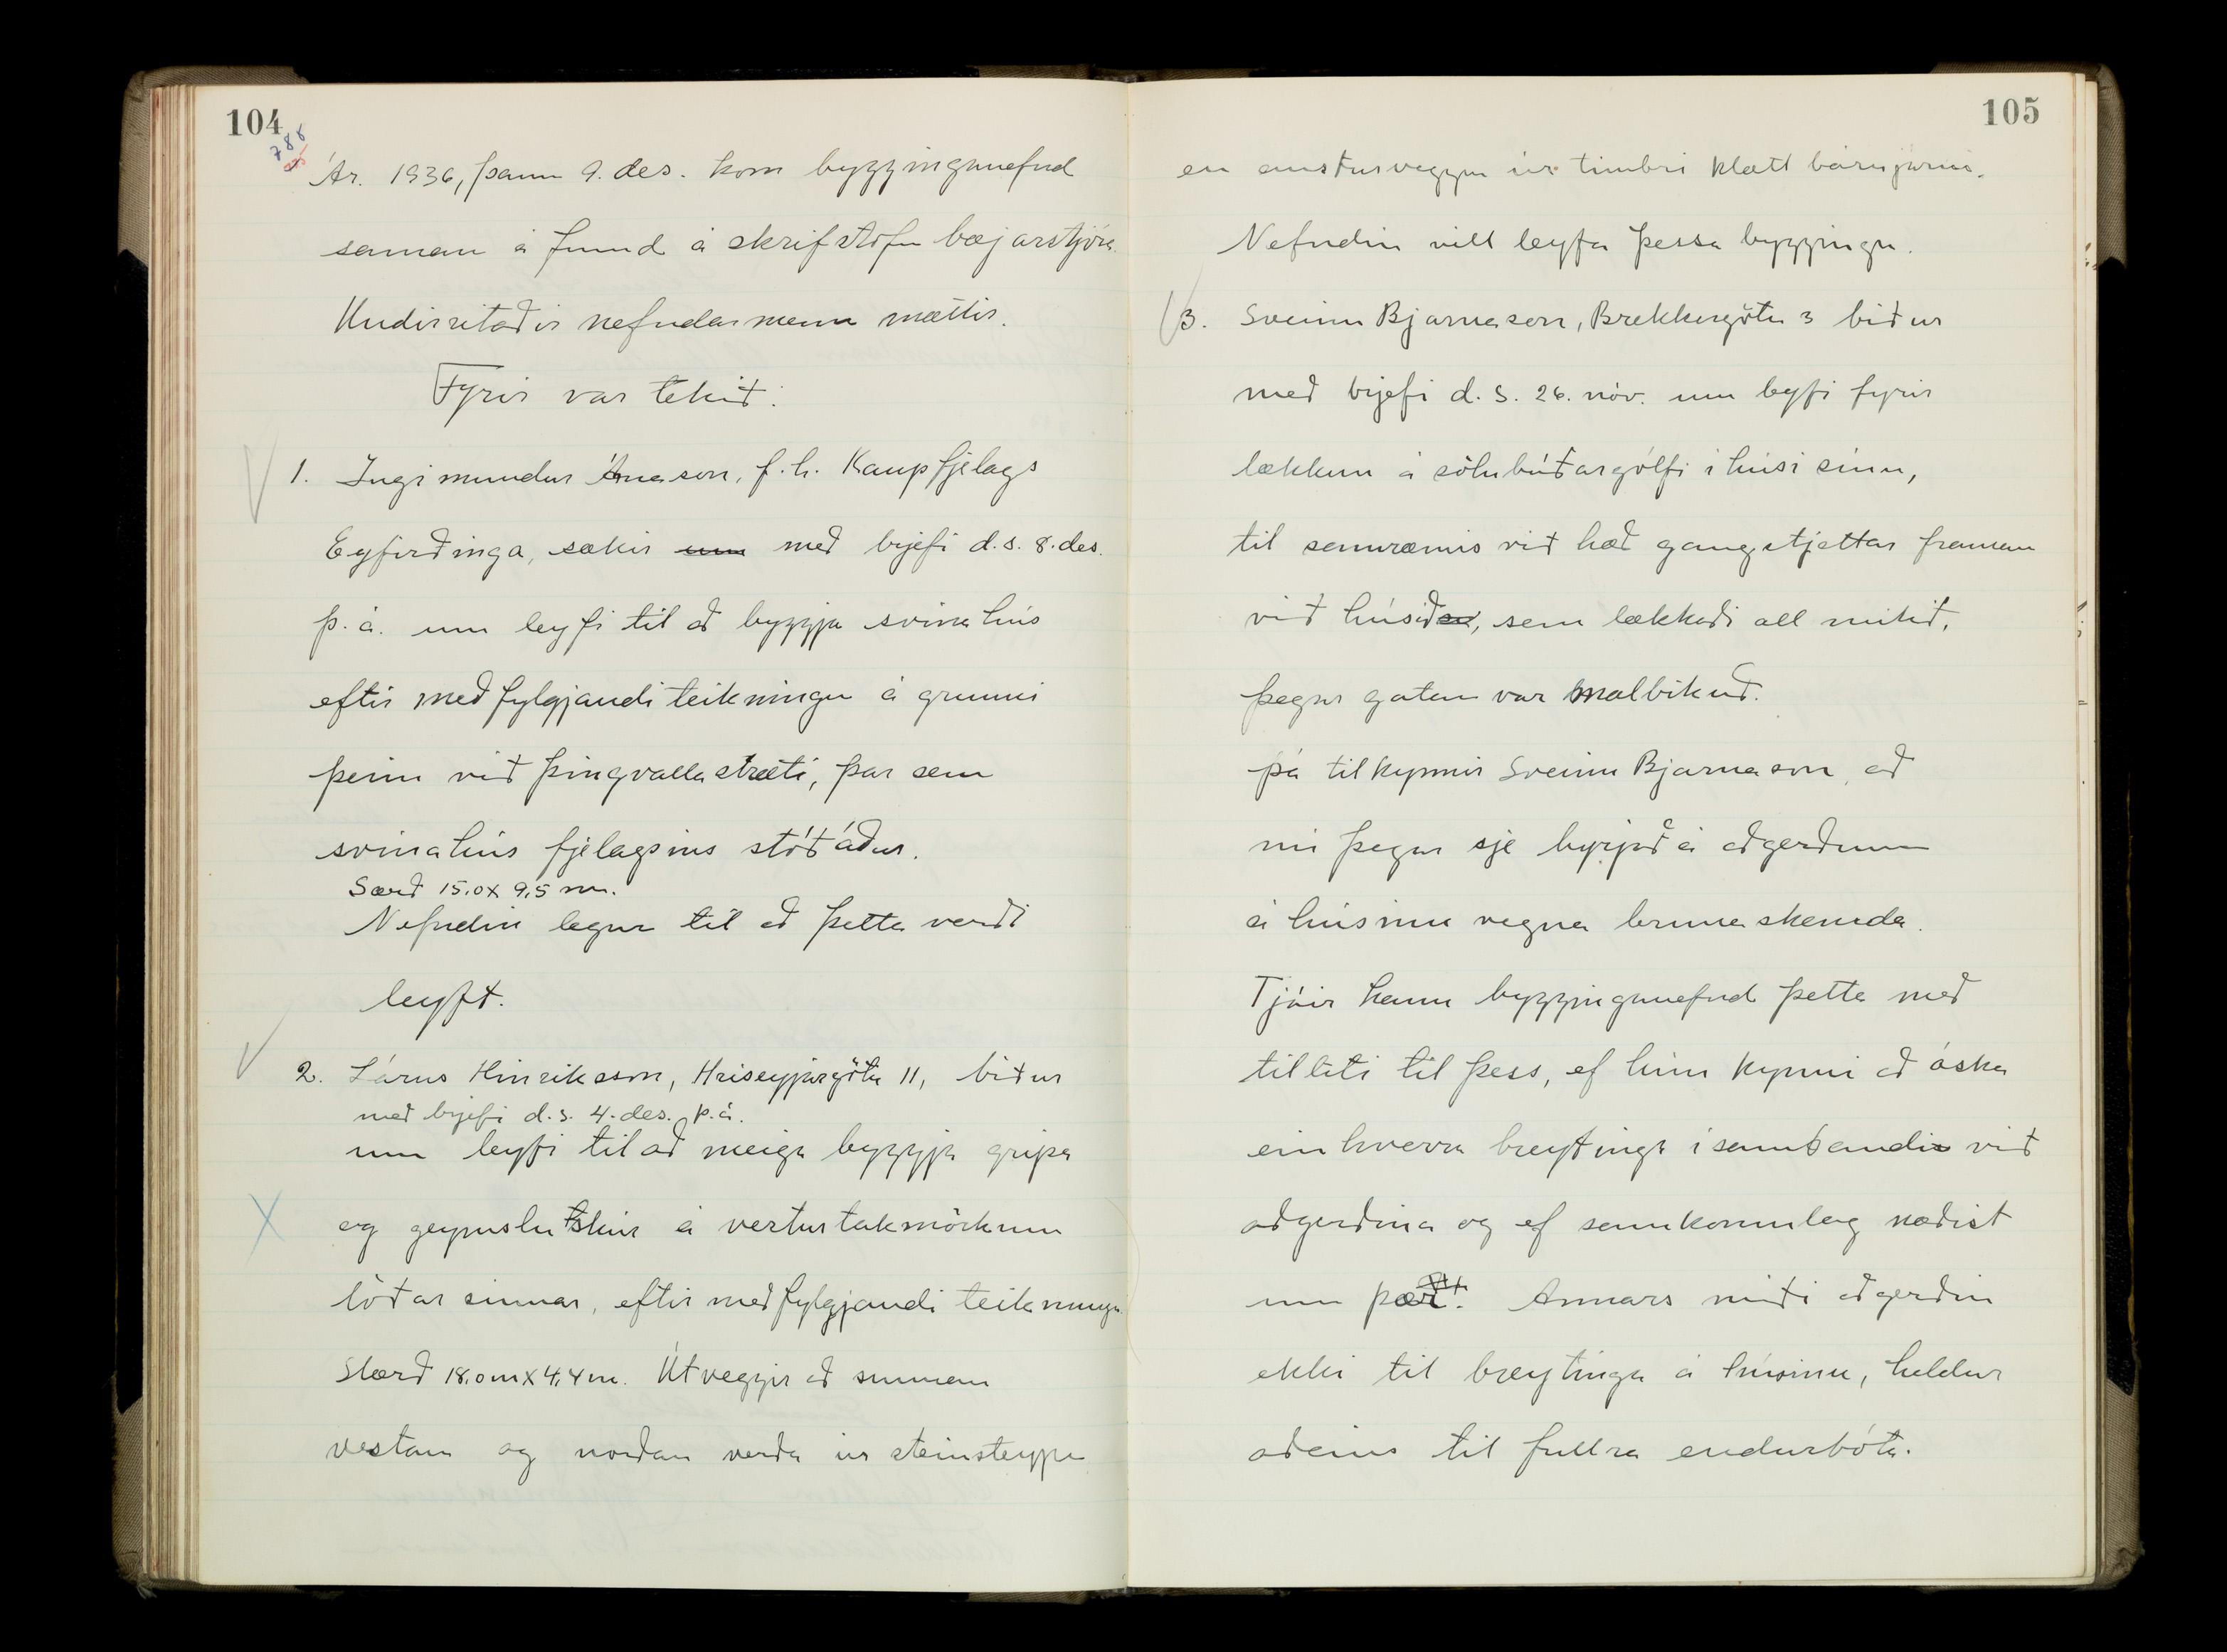 104
788
Ár. 1936, þann 9. des. kom byggingunefnd
saman á fund á skrifstofu bæjarstjóra.
Undirritaðir nefndarmenn mættir.
Fyrir var tekið:
1. Ingimundur Árnason, f.h. Kaupfjelags
Eyfirðinga, sækir um með brjefi d.s. 8. des.
þ.á. um leyfi til að byggja svínahús
eftir meðfylgjandi teikningu á grunni
þeim við Þingvallastræti, þar sem
svínahús fjelagsins stóð áður.
Stærð 15.0 x 9,5 m.
Nefndin legur til að þetta verði
leyft.
2. Lárus Hinriksson, Hríseyjargötu 11, biður
með brjefi d.s. 4. des. þ.á.
um leyfi til að meiga byggja gripa
og geymsluskúr á vesturtakmörkum
lóðar sinnar, eftir meðfylgjandi teikningu.
Stærð 18.0m x 4,4m. Útveggir að sunnan
vestan og norðan verða úr steinsteypu
105
en austurveggur úr timbri klætt bárujárni.
Nefndin vill leyfa þessa byggingu.
3. Sveinn Bjarnason, Brekkugötu 3 biður
með brjefi d.s. 26. nóv. um leyfi fyrir
lækkun á sölubúðargólfi í húsi sínu,
til samræmis við hæð gangstjettar framan
við húsið, sem lækkaði all mikið,
þegar gatan var malbikuð.
Þá tilkynnir Sveinn Bjarnason, að
nú þegar sje byrjað á aðgerðum
á húsinu vegna brunaskemda.
Tjáir hann byggingunefnd þetta með
tilliti til þess, ef hún kynni að óska
einhverra breytinga í sambandi við
aðgerðina og ef samkomulag næðist
um það. Annars miði aðgerðin
ekki til breytinga á húsinu, heldur
aðeins til fullra endurbóta.